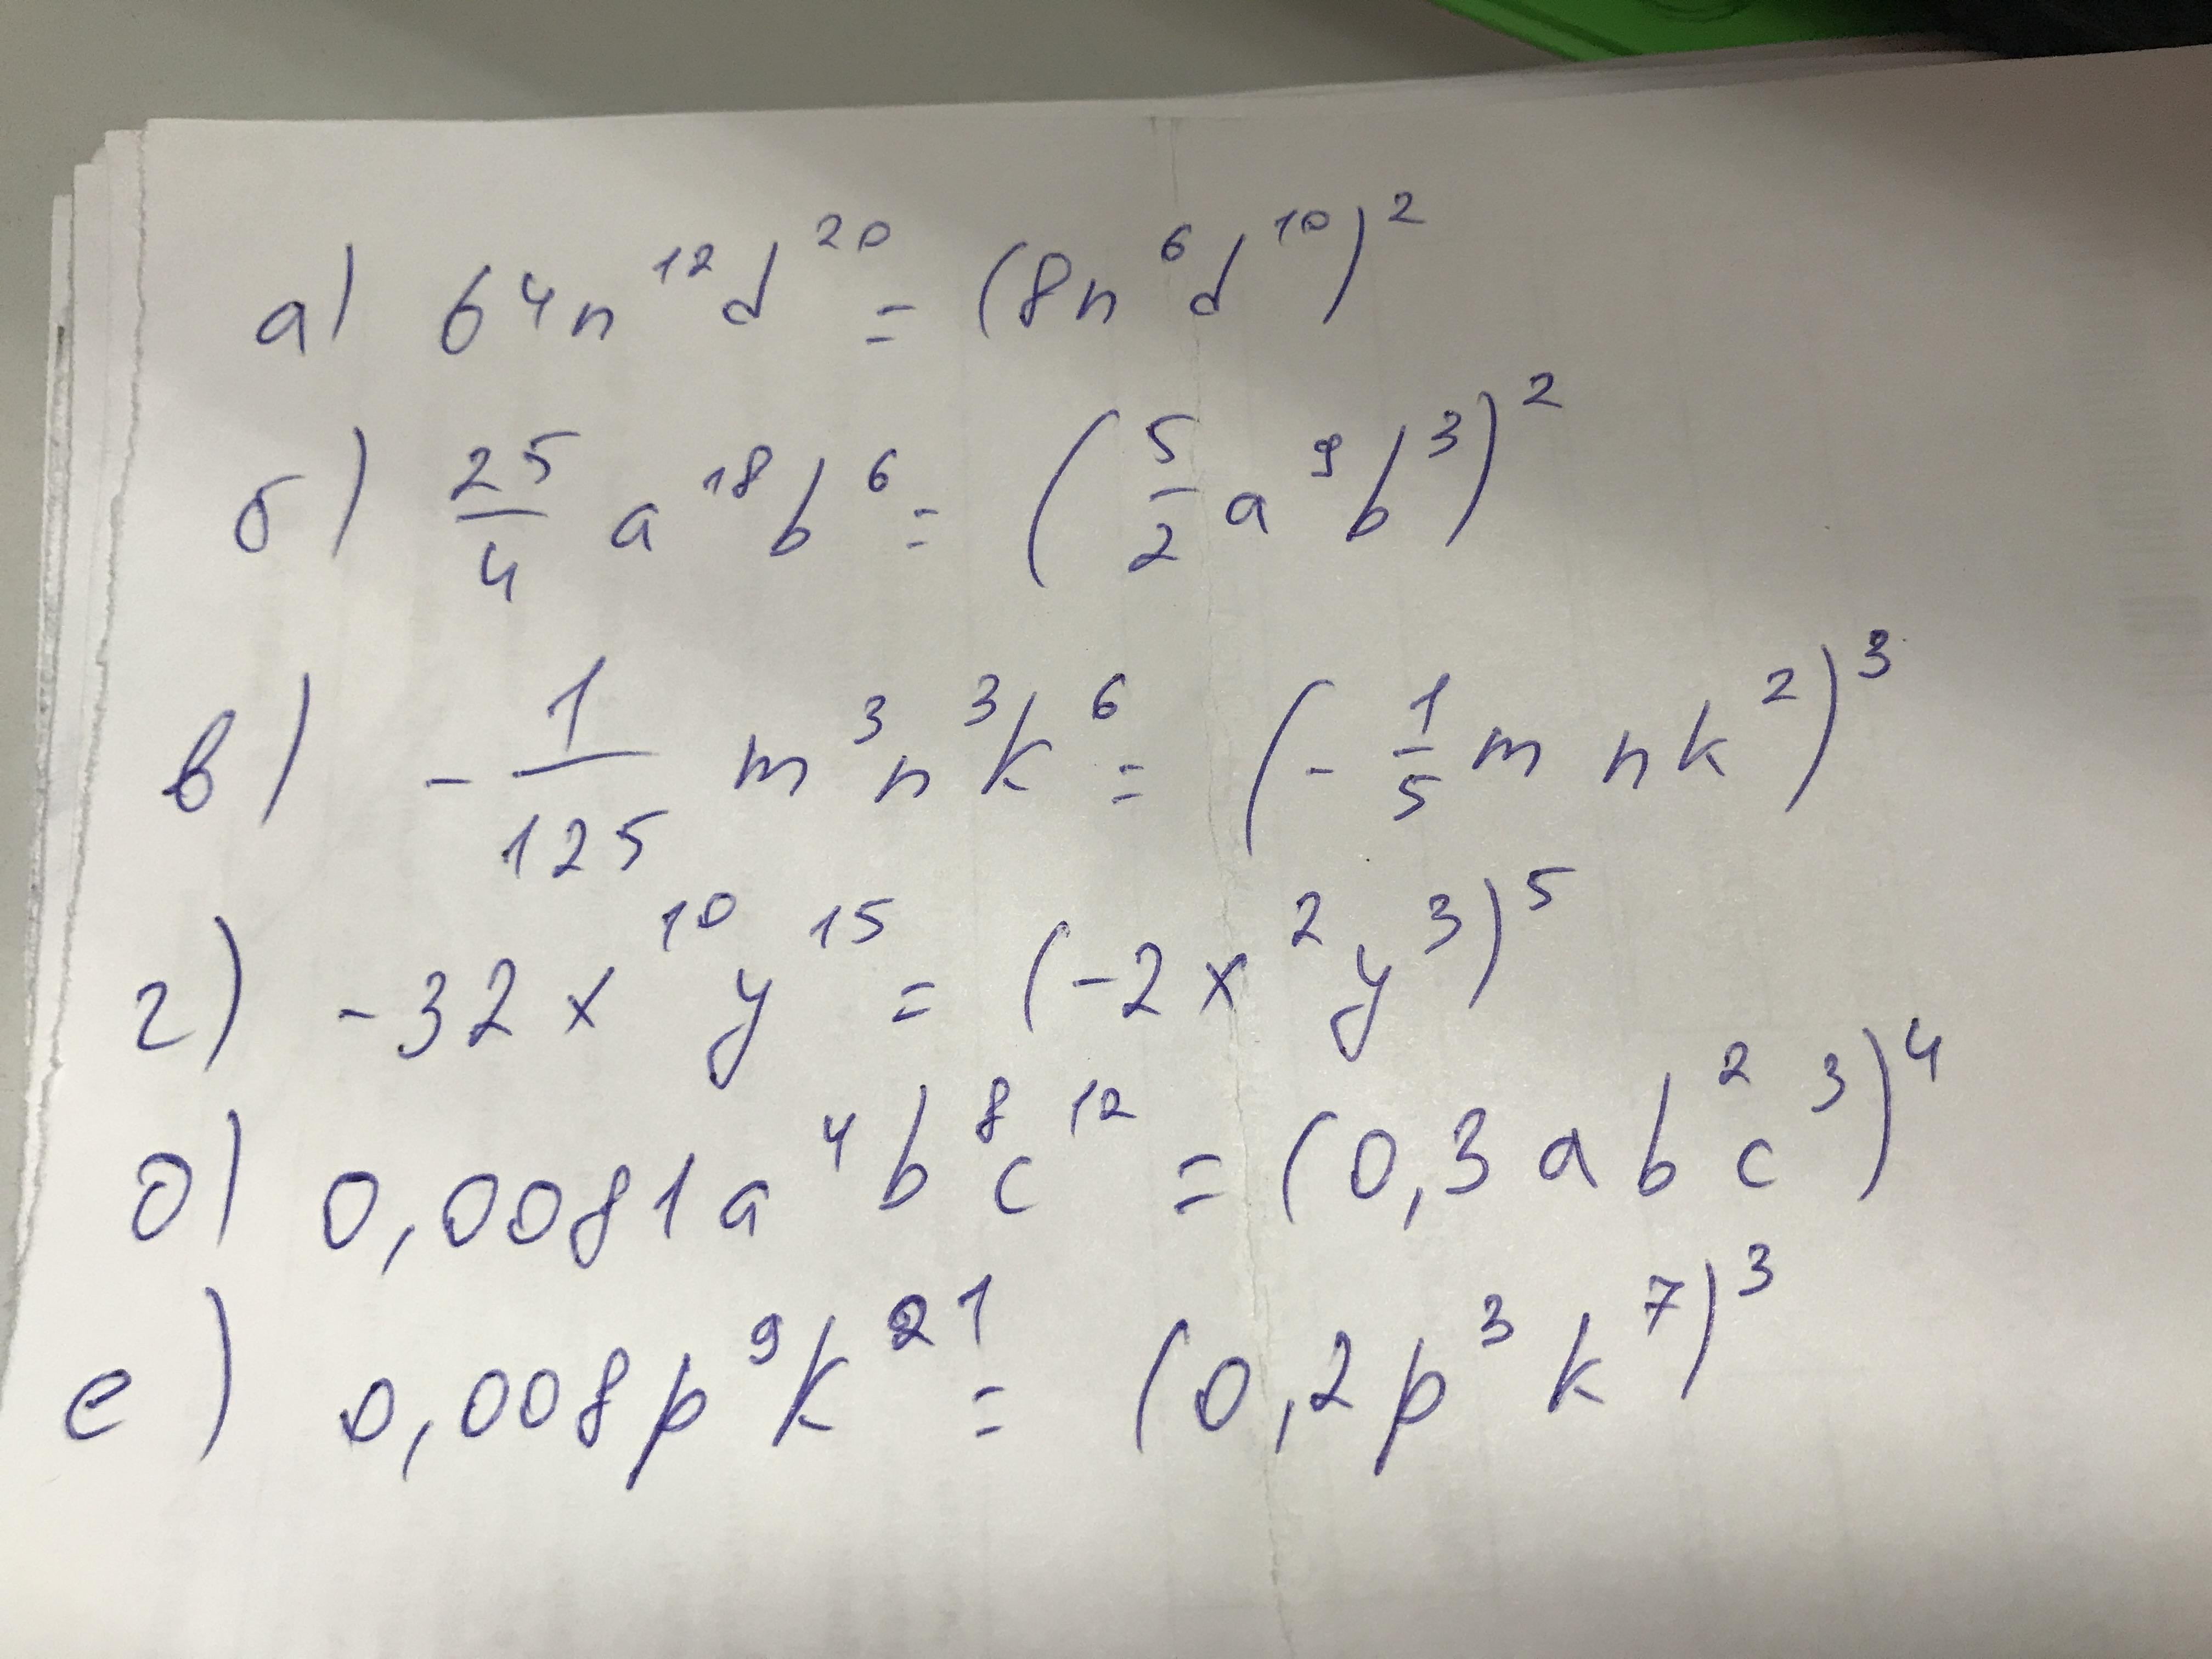 а) 64n¹²d²⁰ = (8n⁶d¹⁰)²
б) 25/4 a¹⁸b⁶ = (5/2 a⁹b³)²
в) -1/125 m³n³k⁶ = (-1/5 m n k²)³
г) -32x¹⁰y¹⁵ = (-2x²y³)⁵
д) 0,0081a⁴b⁸c¹² = (0,3ab²c³)⁴
е) 0,008p⁹k²¹ = (0,2p³k⁷)³